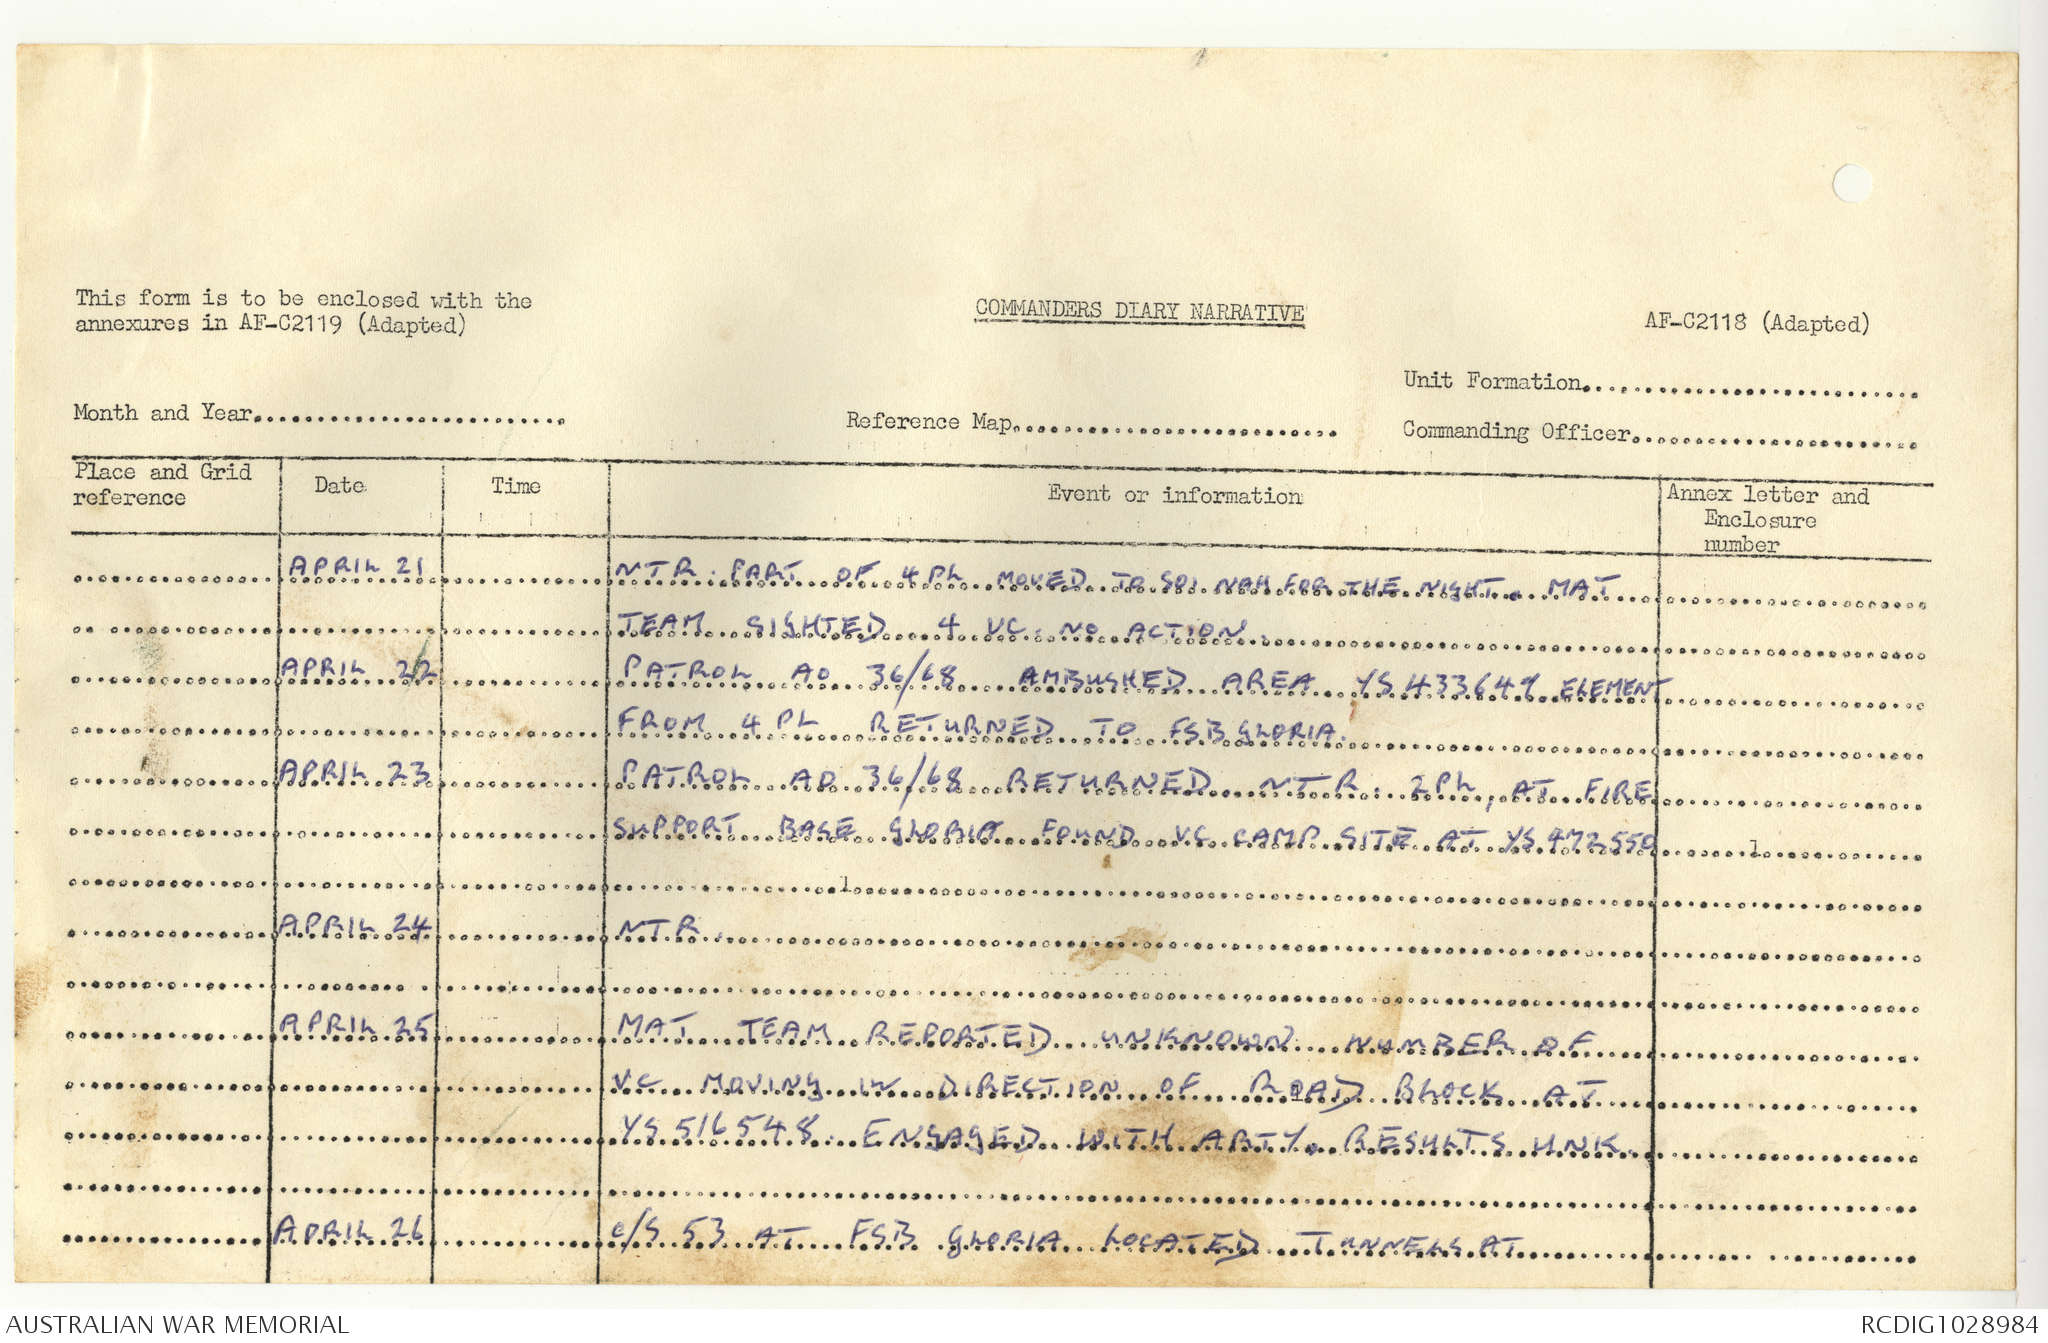 This form is to be enclosed with the
annexures in AF-C2119 (Adapted)
COMMANDERS DIARY NARRATIVE
AF-C2118 (Adapted)
Month and Year
Reference Map
Unit Formation
Commanding Officer
Place and Grid reference
Date
Time
Event or information
Annex letter and Enclosure number
APRIL 21 NTR. PART OF 4 PL MOVED TO SOI NAH FOR THE NIGHT. MAT
TEAM SIGHTED 4 VC. NO ACTION.
APRIL 22 PATROL AO 36/68 AMBUSHED AREA YS 433649 ELEMENT
FROM 4 PL RETURNED TO FSB GLORIA.
APRIL 23 PATROL AO 36/68 RETURNED NTR. 2 PL, AT FIRE
SUPPORT BASE GLORIA FOUND VC CAMP SITE AT YS 472550
APRIL 24 NTR.
APRIL 25 MAT TEAM REPORTED UNKNOWN NUMBER OF
VC MOVING IN DIRECTION OF ROAD BLOCK AT
YS 516548. ENGAGED WITH ARTY. RESULTS UNK.
APRIL 26 C/S 53 AT FSB GLORIA LOCATED TUNNELS AT
AUSTRALIAN WAR MEMORIAL
RCDIG1028984